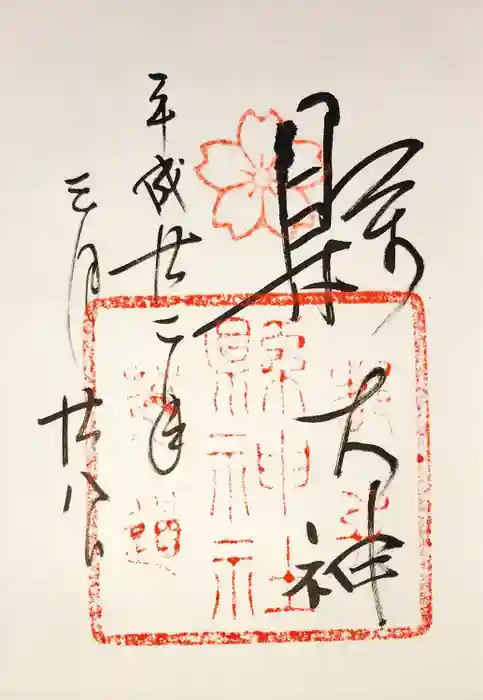 縣大神
平成廿二年
三月廿八日
縣神社